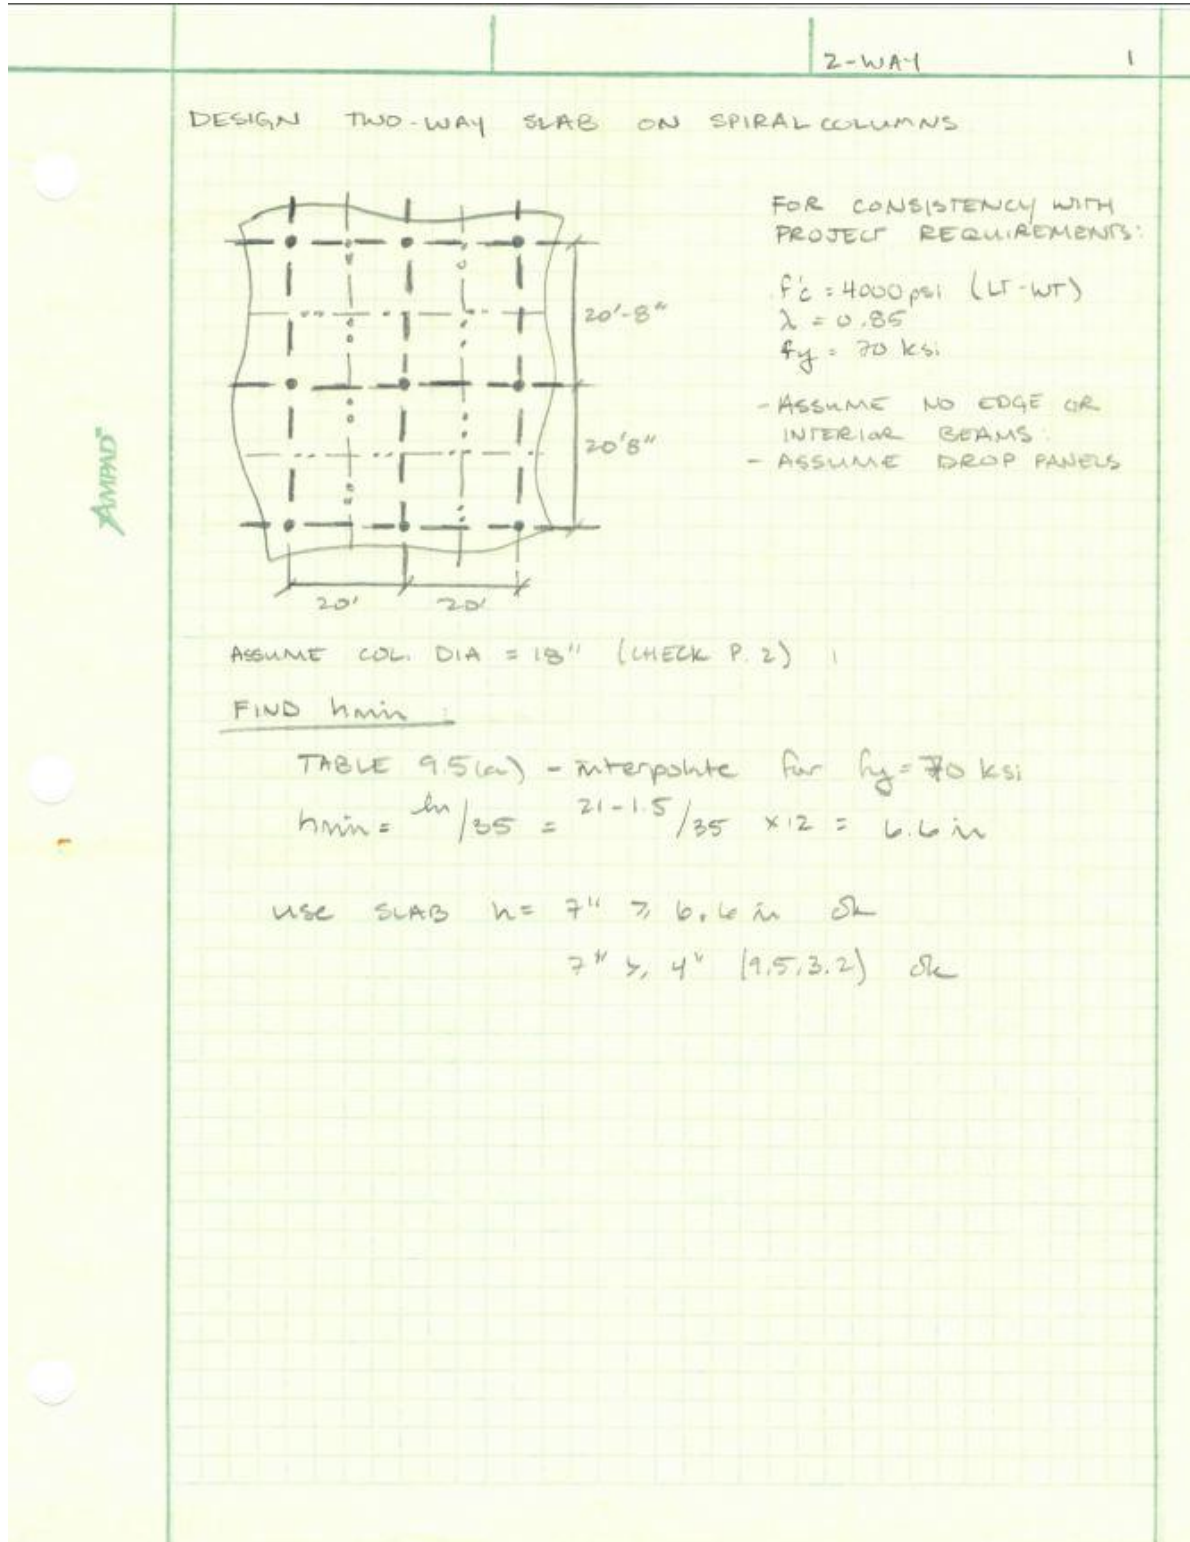 2-WAY 1
DESIGN TWO-WAY SLAB ON SPIRAL COLUMNS
FOR CONSISTENCY WITH
PROJECT REQUIREMENTS:
f'c = 4000 psi (LT-WT)
λ = 0.85
fy = 70 ksi
- ASSUME NO EDGE OR
INTERIOR BEAMS.
- ASSUME DROP PANELS
20'-8"
20'8"
20' 20'
AMPAD™
ASSUME COL. DIA = 18" (CHECK P. 2)
FIND hmin:
TABLE 9.5(a) - interpolate for fy = 70 ksi
hmin = ln/35 = 21-1.5/35 x12 = 6.6 in
USE SLAB h = 7" ≥ 6.6 in ok
7" ≥ 4" (9.5.3.2) ok